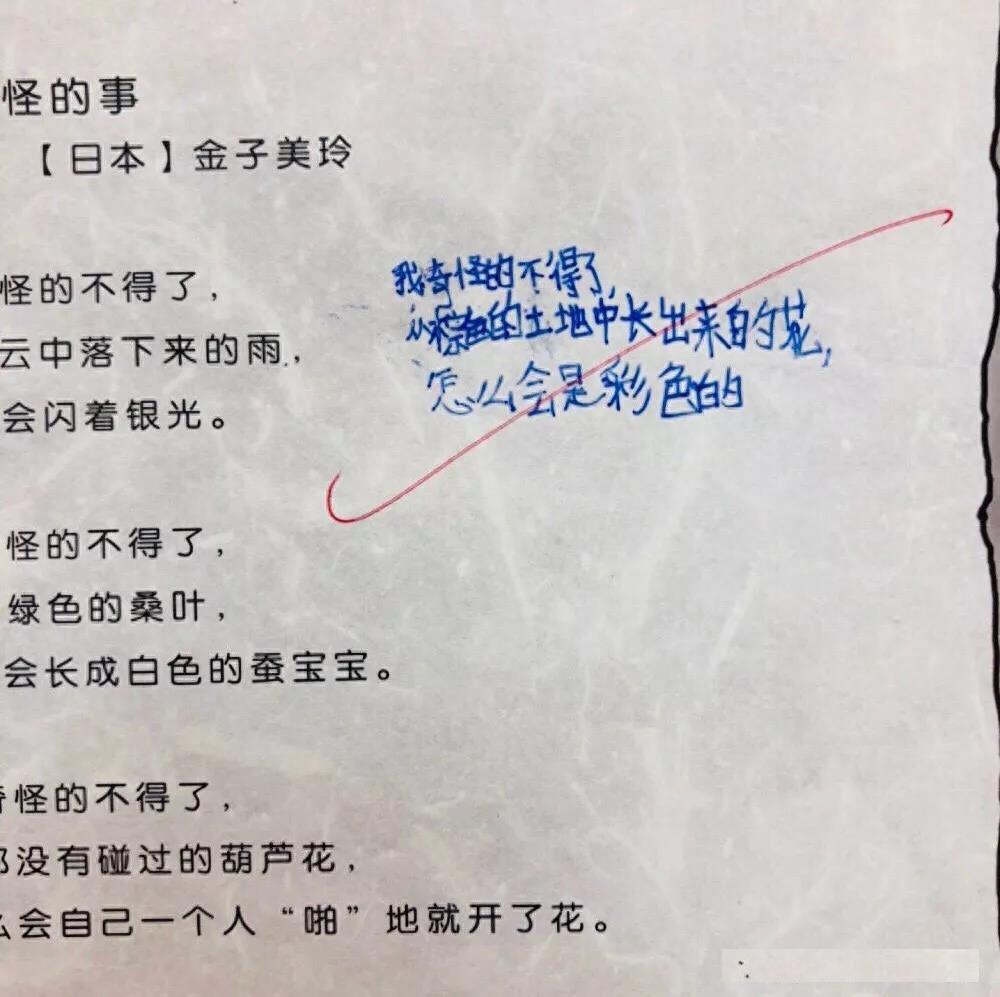 怪的事
【日本】金子美玲
怪的不得了，
云中落下来的雨，
会闪着银光。
我奇怪的不得了，
从棕色的土地中长出来的花，
怎么会是彩色的
怪的不得了，
绿色的桑叶，
会长成白色的蚕宝宝。
怪的不得了，
没有碰过的葫芦花，
会自己一个人“啪”地就开了花。